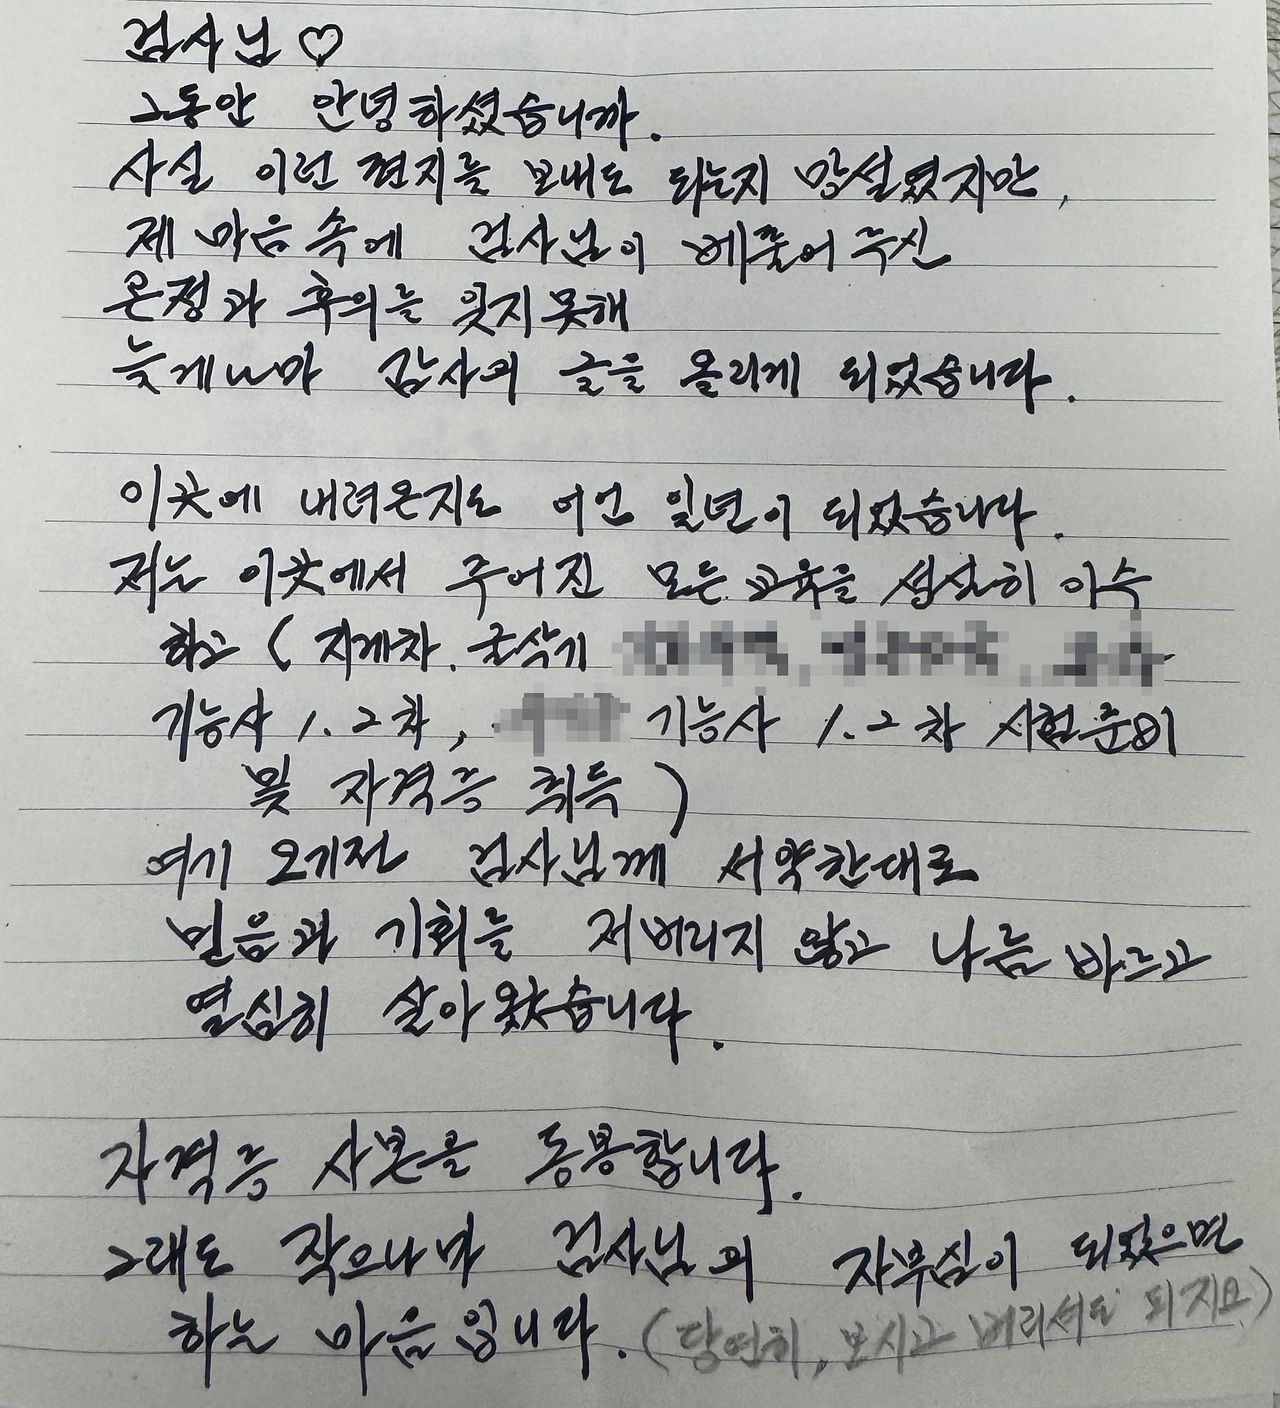 검사님 ♡
그동안 안녕하셨습니까.
사실 이런 편지를 보내도 되는지 망설였지만,
제 마음속에 검사님이 베풀어 주신
온정과 후의를 잊지못해
늦게나마 감사의 글을 올리게 되었습니다.
이곳에 내려온지도 어언 일년이 되었습니다.
저는 이곳에서 주어진 모든 교육을 성실히 이수
하고 ( 지게차. 굴삭기
기능사 1.2차, 기능사 1.2차 시험준비
및 자격증 취득 )
여기 오기전 검사님께 서약한대로
믿음과 기회를 저버리지 않고 나름 바르고
열심히 살아왔습니다.
자격증 사본을 동봉합니다.
그래도 작으나마 검사님의 자부심이 되었으면
하는 마음입니다. (당연히, 보시고 버리셔도 되지요)